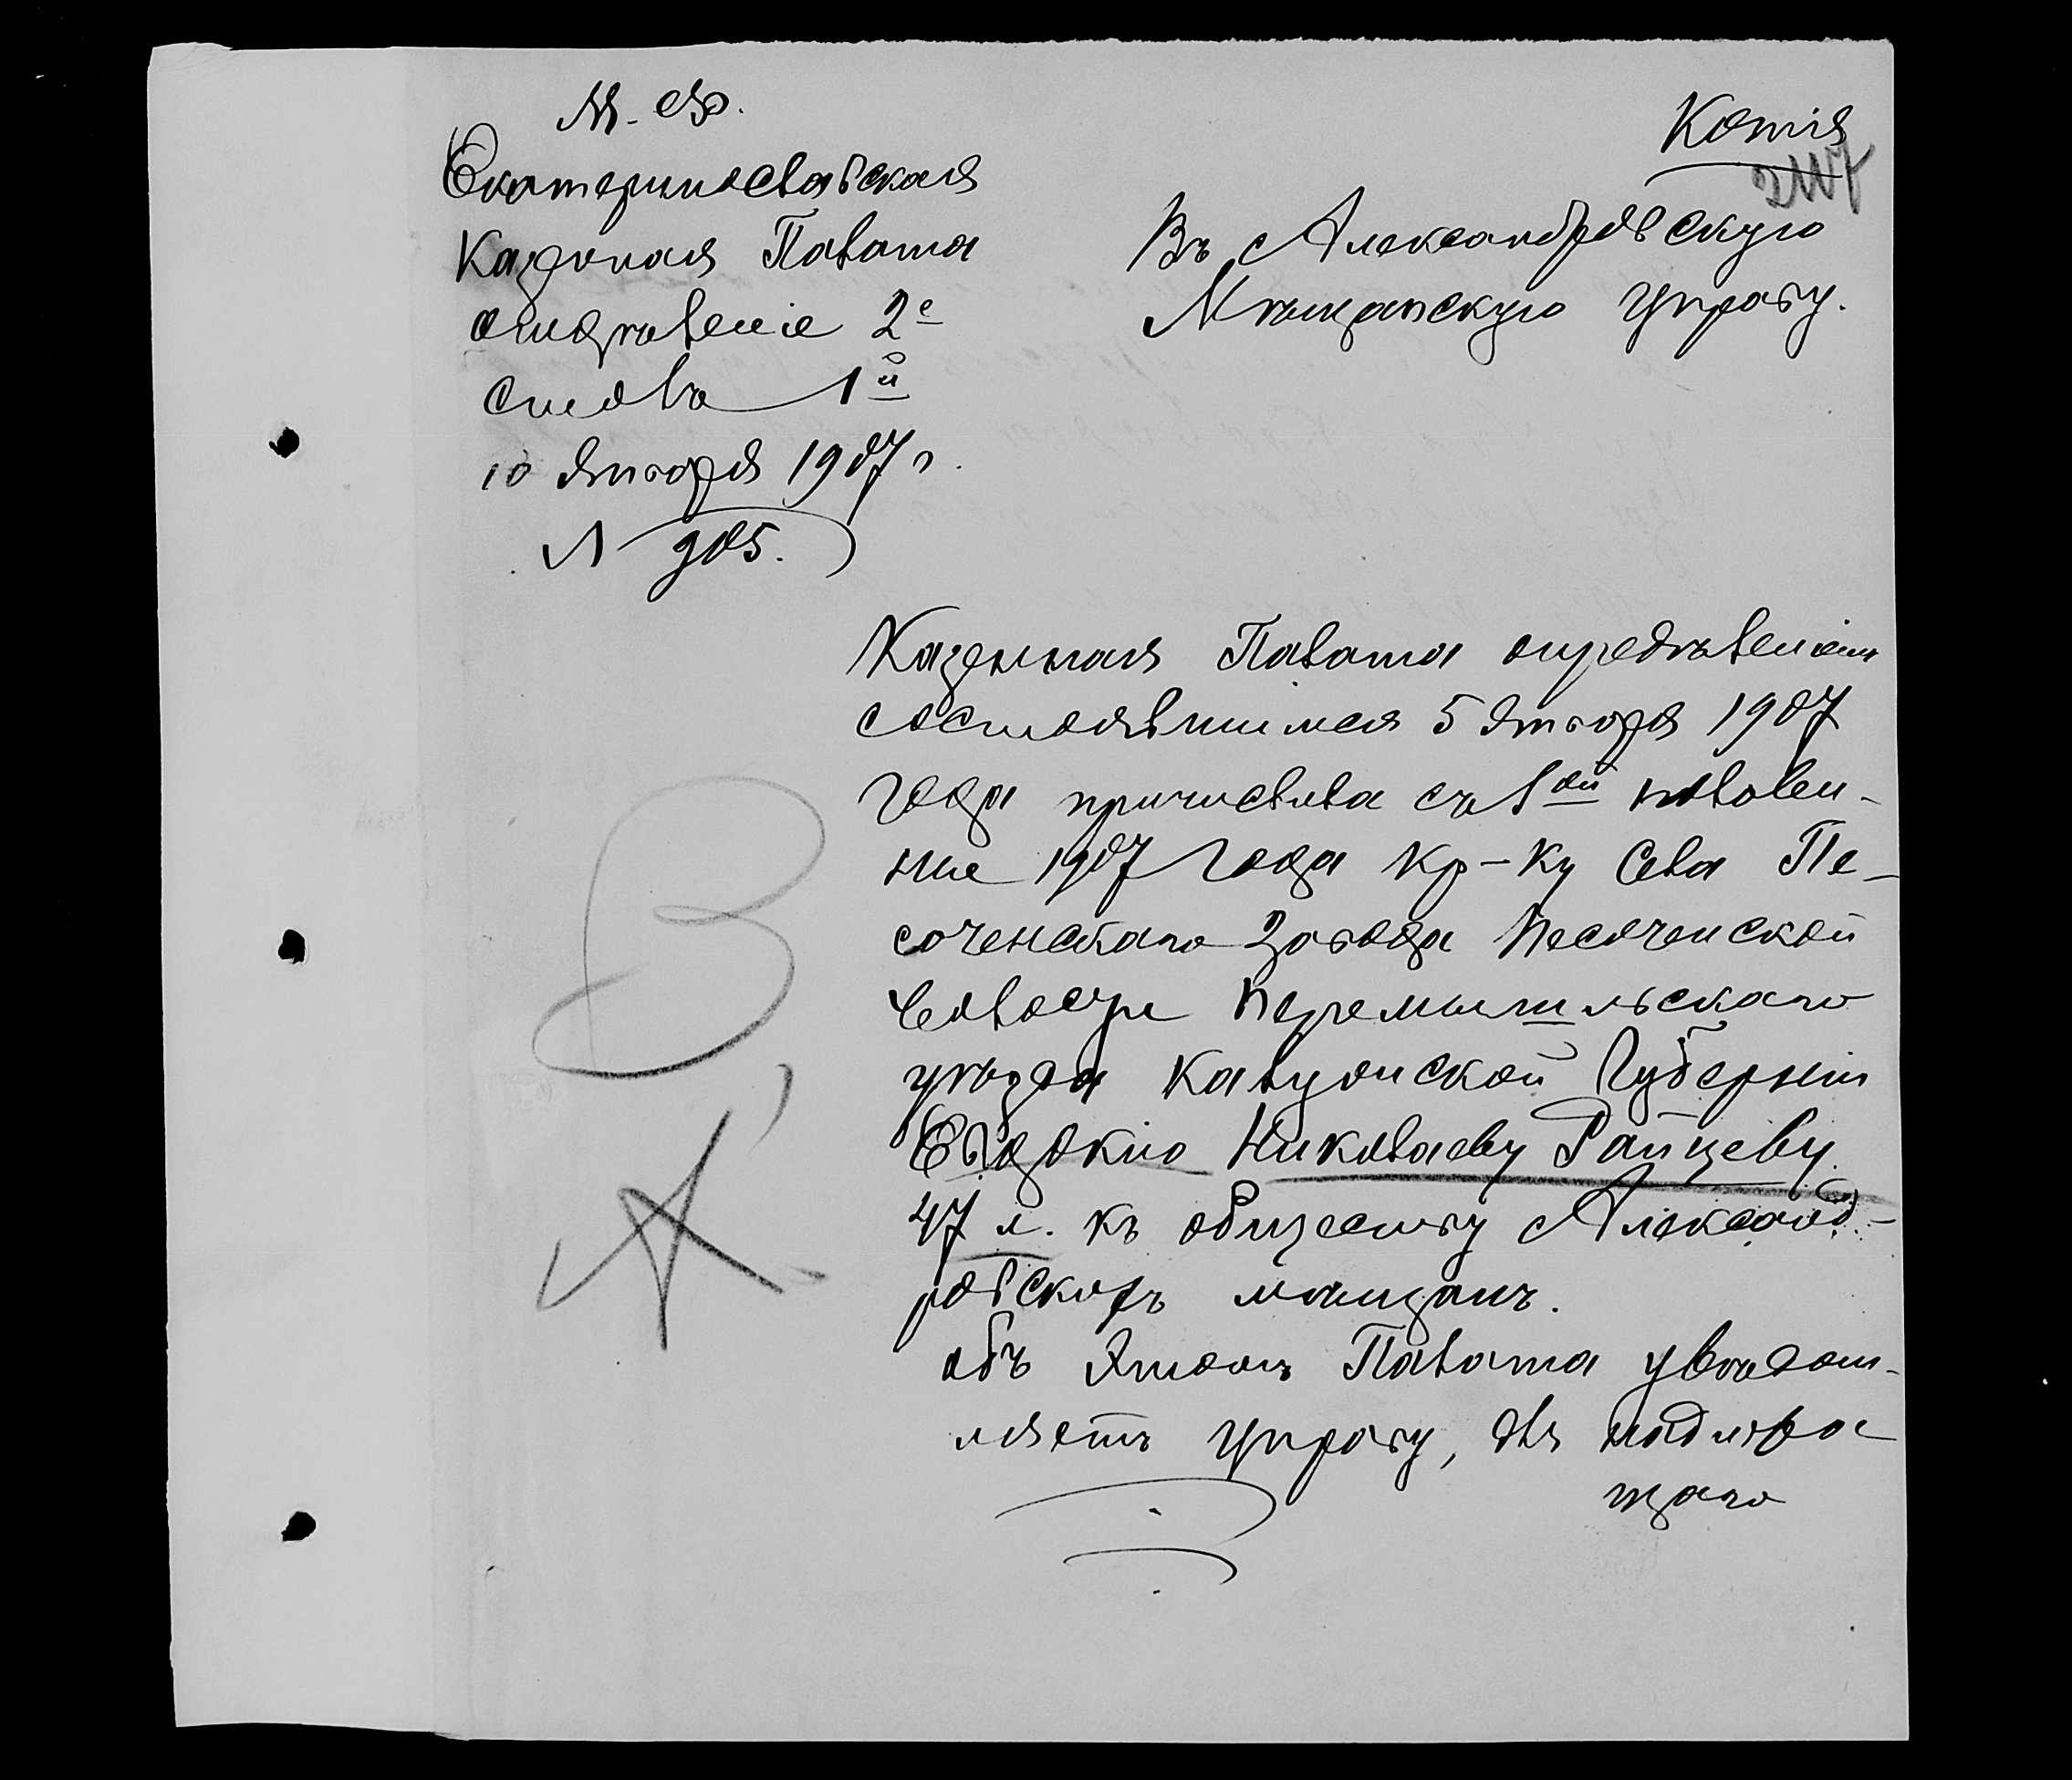 М. Ф.
Екатеринославская
Казенная Палата
отдѣленіе 2е
столъ 1й
10 января 1907 г.
№ 905.
Копія
Въ Александровскую
Мѣщанскую Управу.
Казенная Палата опредѣленіем
состоявшимся 5 января 1907
года причислила съ 1ой полови-
ны 1907 года кр-ку Села Пе-
соченскаго Завода Песоченской
волости Перемышльскаго
уѣзда Калужской Губерніи
Евдокію Николаеву Райцеву
47 л. къ обществу Александ-
ровскихъ мѣщанъ.
объ этомъ Палата увѣдом-
ляетъ Управу, для надлежа
щаго
В,
А